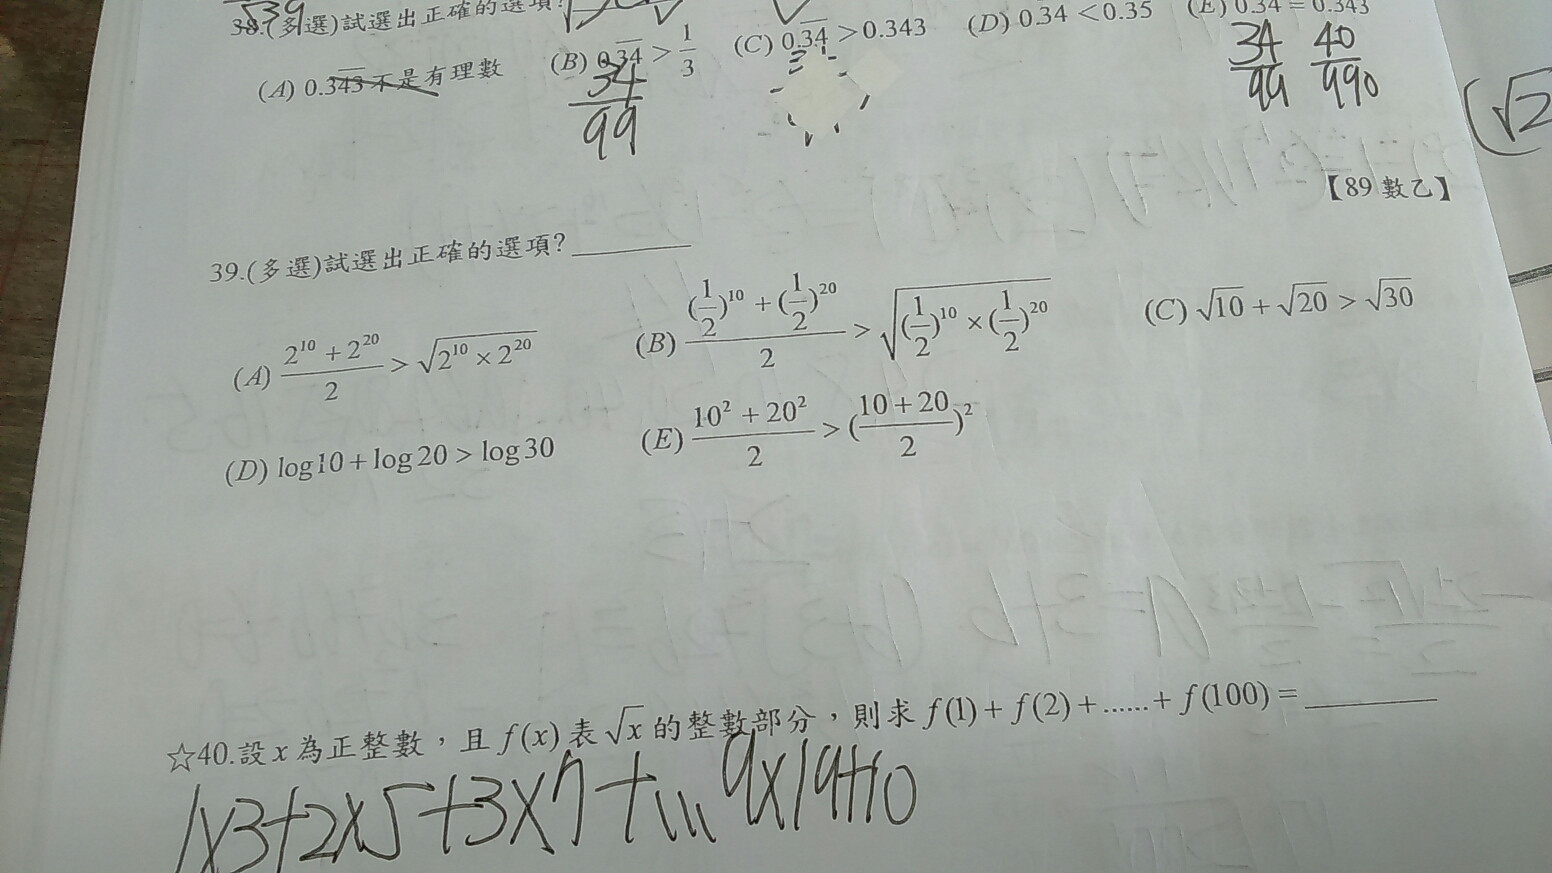 39
38.(多選)試選出正確的選項?
(A) 0.343不是有理數 (B) 0.3̅4̅ > 1/3 (C) 0.3̅4̅ > 0.343 (D) 0.34 < 0.35 (E) 0.34 = 0.343
34/99 34/99 40/990
(√2
【89 數乙】
39.(多選)試選出正確的選項? ______
(A) (2¹⁰ + 2²⁰)/2 > √(2¹⁰ × 2²⁰) (B) ((1/2)¹⁰ + (1/2)²⁰)/2 > √((1/2)¹⁰ × (1/2)²⁰) (C) √10 + √20 > √30
(D) log10 + log20 > log30 (E) (10² + 20²)/2 > ((10 + 20)/2)²
☆40.設 x 為正整數，且 f(x) 表 √x 的整數部分，則求 f(1) + f(2) + ...... + f(100) = ______
1×3+2×5+3×7+... 9×19+10